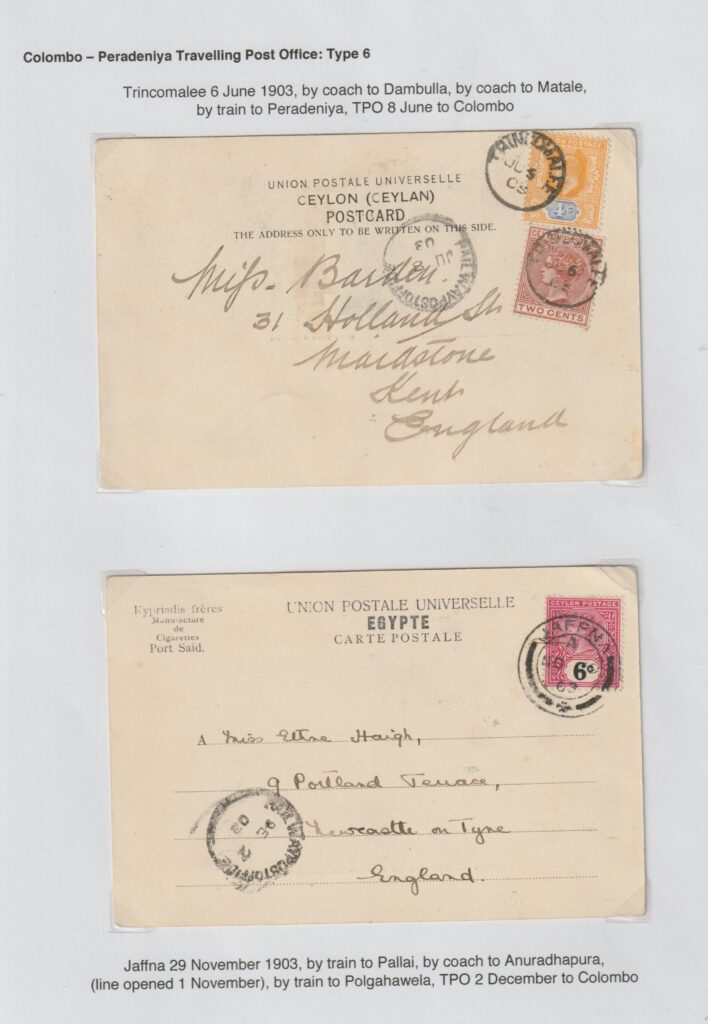 Colombo – Peradeniya Travelling Post Office: Type 6
Trincomalee 6 June 1903, by coach to Dambulla, by coach to Matale,
by train to Peradeniya, TPO 8 June to Colombo
UNION POSTALE UNIVERSELLE
CEYLON (CEYLAN)
POSTCARD
THE ADDRESS ONLY TO BE WRITTEN ON THIS SIDE.
TRINCOMALEE
JU
03
POSTAGE
4c
TWO CENTS
RAILWAY POST OFFICE
JU 8
03
Miss. Barden.
31 Holland St
Maidstone
Kent
England
Kypriadis frères
Manufacture
de
Cigarettes
Port Said.
UNION POSTALE UNIVERSELLE
EGYPTE
CARTE POSTALE
CEYLON POSTAGE
6c
JAFFNA
A
03
A Miss Haigh,
9 Portland Terrace,
Newcastle on Tyne
England.
RAILWAY POST OFFICE
DE 2
03
Jaffna 29 November 1903, by train to Pallai, by coach to Anuradhapura,
(line opened 1 November), by train to Polgahawela, TPO 2 December to Colombo